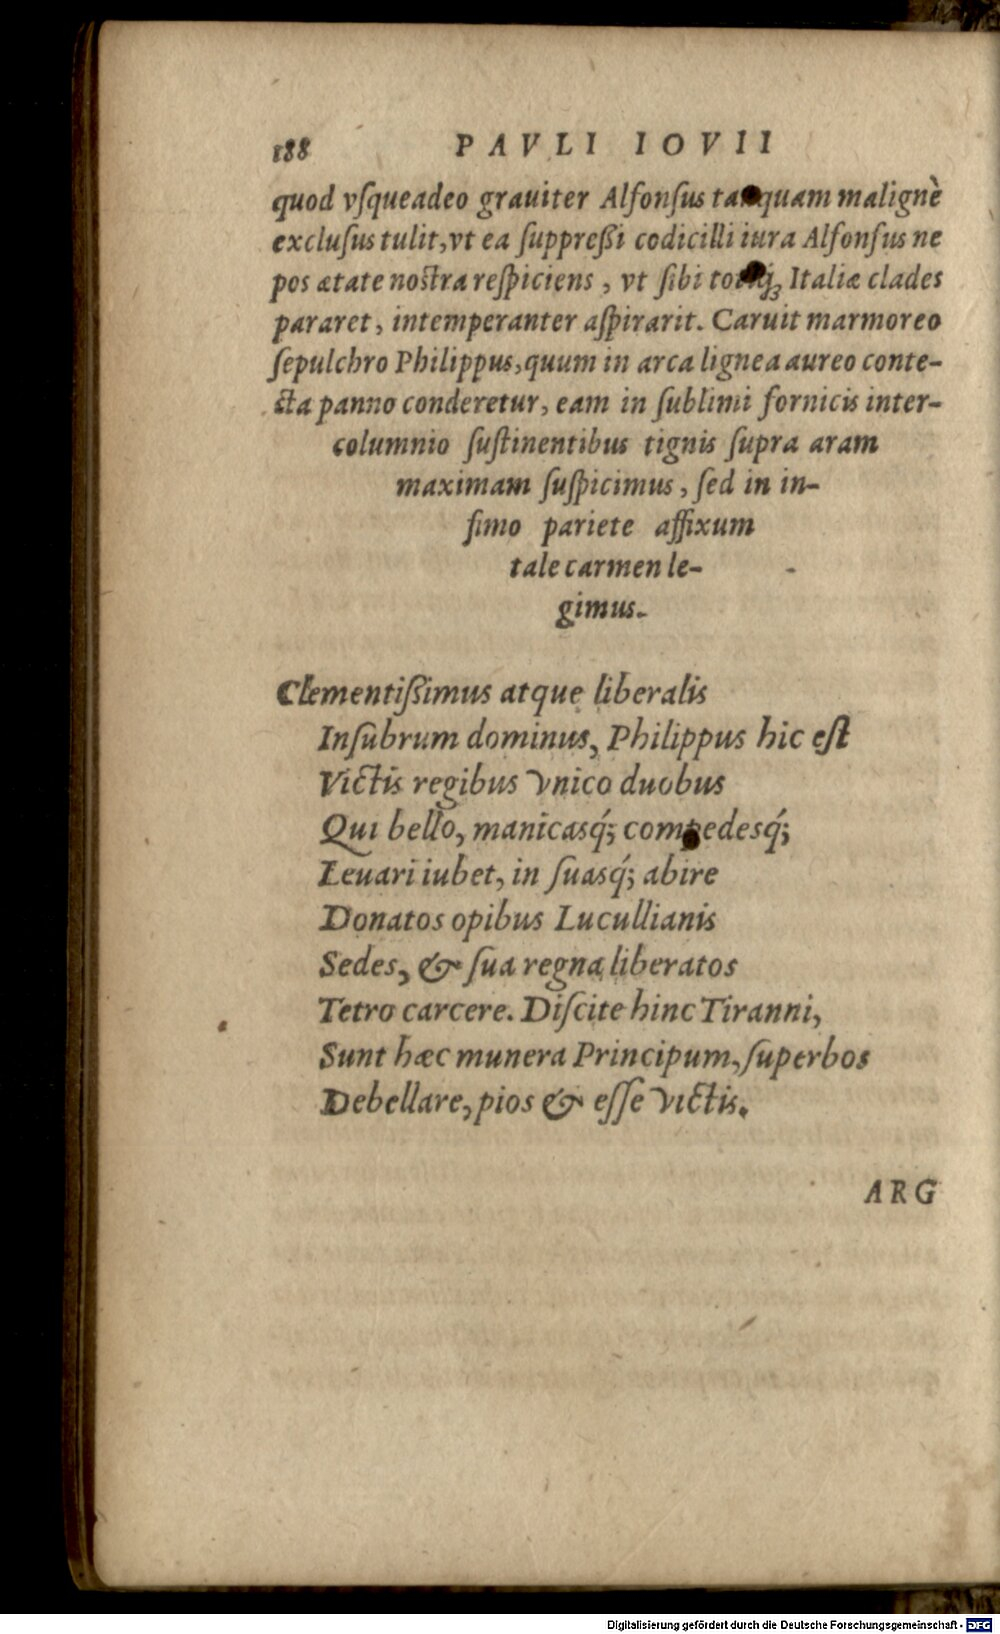 188 PAVLI IOVII
quod vſqueadeo grauiter Alfonſus tanquam malignè
excluſus tulit, vt ea ſuppreßi codicilli iura Alfonſus ne
pos ætate noſtra reſpiciens, vt ſibi Italiæ clades
pararet, intemperanter aſpirarit. Caruit marmoreo
ſepulchro Philippus, quum in arca lignea aureo conte-
cta panno conderetur, eam in ſublimi fornicis inter-
columnio ſuſtinentibus tignis ſupra aram
maximam ſuſpicimus, ſed in in-
fimo pariete affixum
tale carmen le-
gimus.
Clementißimus atque liberalis
Inſubrum dominus, Philippus hic eſt
Victis regibus vnico duobus
Qui bello, manicasq́; compedesq́;
Leuari iubet, in ſuasq́; abire
Donatos opibus Lucullianis
Sedes, & ſua regna liberatos
Tetro carcere. Diſcite hinc Tiranni,
Sunt hæc munera Principum, ſuperbos
Debellare, pios & eſſe victis.
ARG
Digitalisierung gefördert durch die Deutsche Forschungsgemeinschaft - DFG